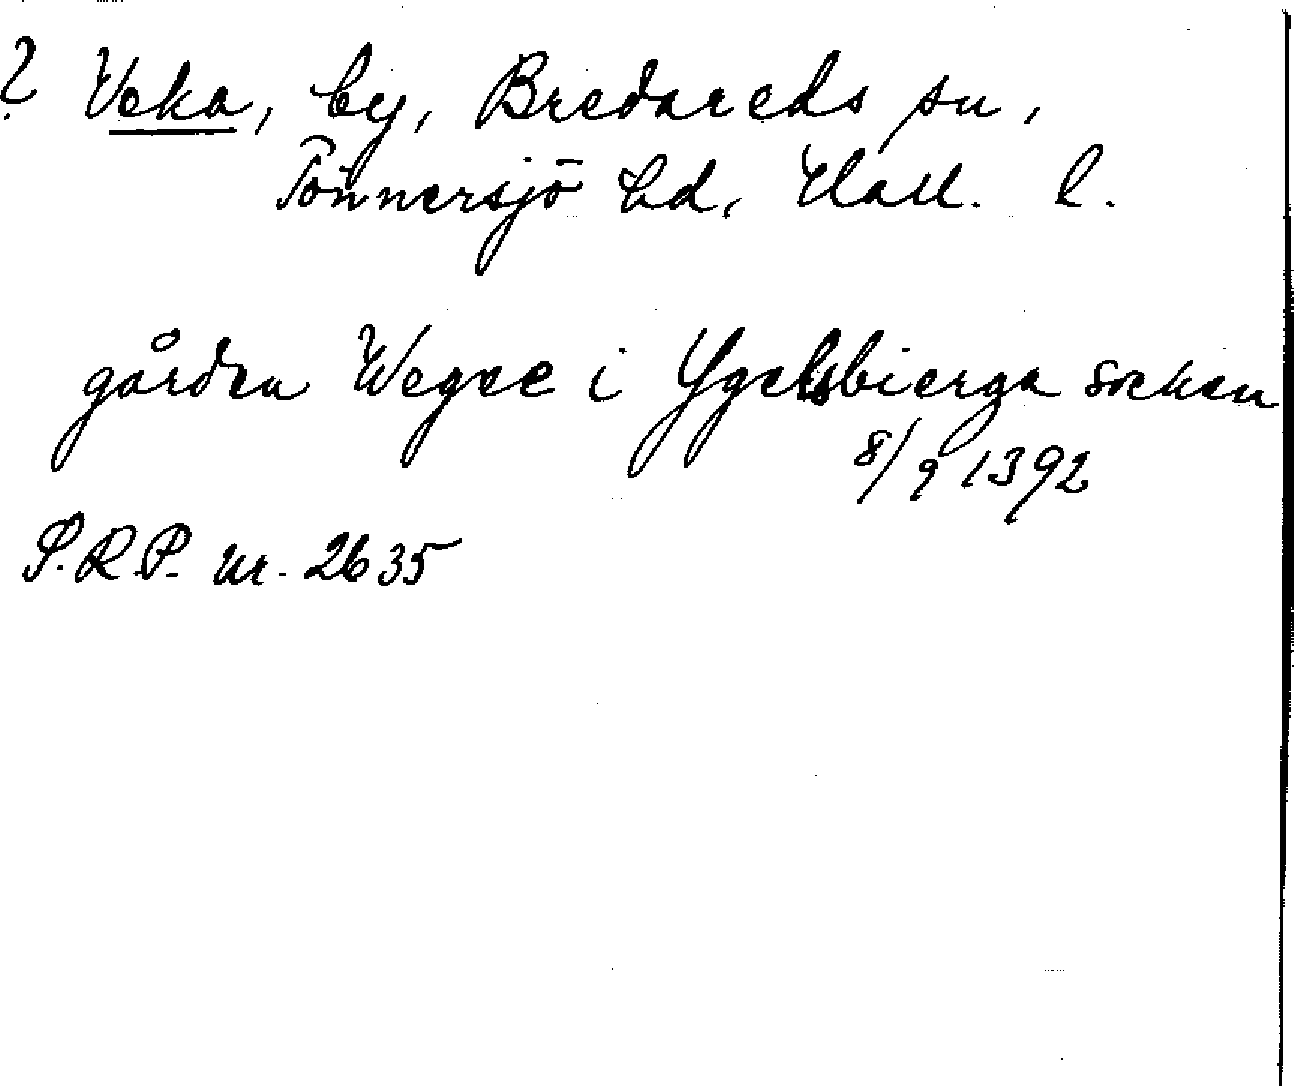 ? Veka, by, Bredareds sn,
Tönnersjö hd, Hall. l.
gården Wegee i Ygelsbierga socken
8/9 1392
S.R.P. nr. 2635